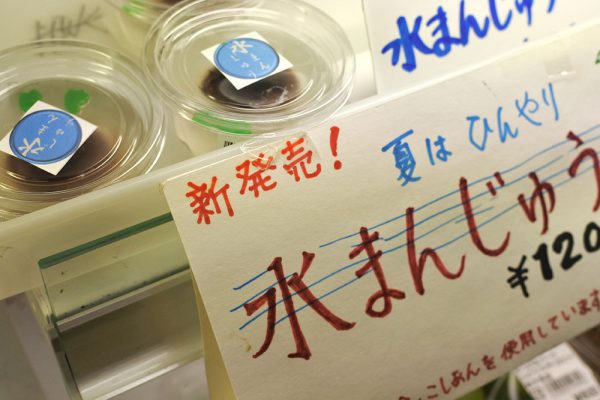 水まんじゅう
水
まん
じゅう
水まんじゅう
新発売！
夏は ひんやり
水まんじゅう
¥120
こしあんを使用しています